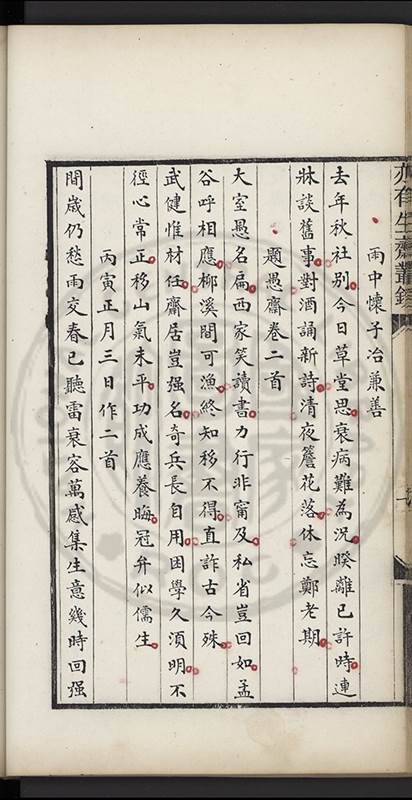 亦有生齋叢錄
雨中懷子冶兼善
去年秋社別今日草堂思衰病難為況暌離已許時連
牀談舊事對酒誦新詩清夜簷花落休忘鄭老期
題愚齋卷二首
大室愚名扁西家笑讀書力行非甯及私省豈回如孟
谷呼相應柳溪間可漁終知移不得直詐古今殊
武健惟材任齋居豈强名奇兵長自用困學久須明不
徑心常正移山氣未平功成應養晦冠弁似儒生
丙寅正月三日作二首
間歲仍愁雨交春已聽雷衰容萬感集生意幾時回强